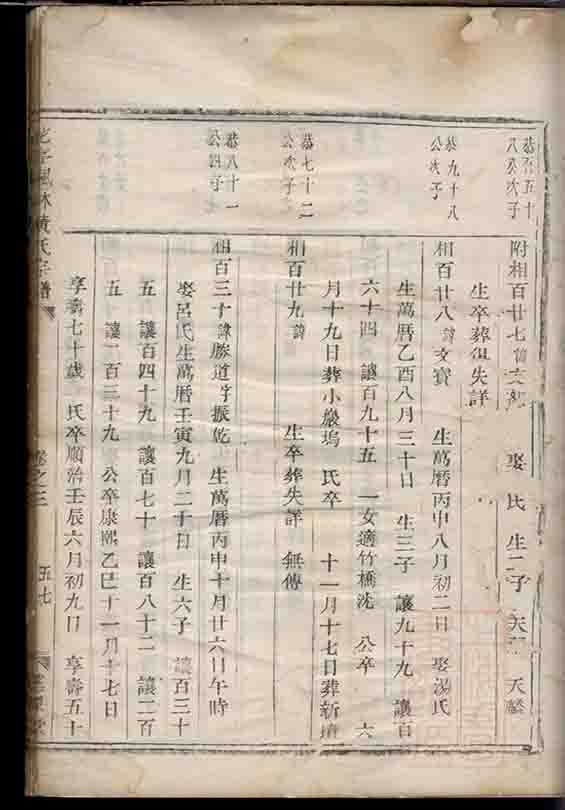 恭百五十
八公次子
附相百廿七諱文 娶 氏 生二子 天 天麟
生卒葬俱失詳
恭九十八
公次子
相百廿八諱文賓 生萬曆丙申八月初二日 娶湯氏
生萬曆乙酉八月三十日 生三子 讓九十九 讓百
六十四 讓百九十五 一女適竹橋沈 公卒 六
月十九日葬小巖塢 氏卒 十一月十七日葬新墳
恭七十二
公次子
相百廿九諱 生卒葬失詳 無傳
恭八十一
公四子
相百三十諱勝道字振乾 生萬曆丙申十月廿六日午時
娶呂氏生萬曆壬寅九月二十日 生六子 讓百三十
五 讓百四十九 讓百七十 讓百八十二 讓二百
五 讓一百三十九 公卒康熙乙巳十一月十七日
享壽七十歲 氏卒順治壬辰六月初九日 享壽五十
黃氏宗譜 卷之三 五七